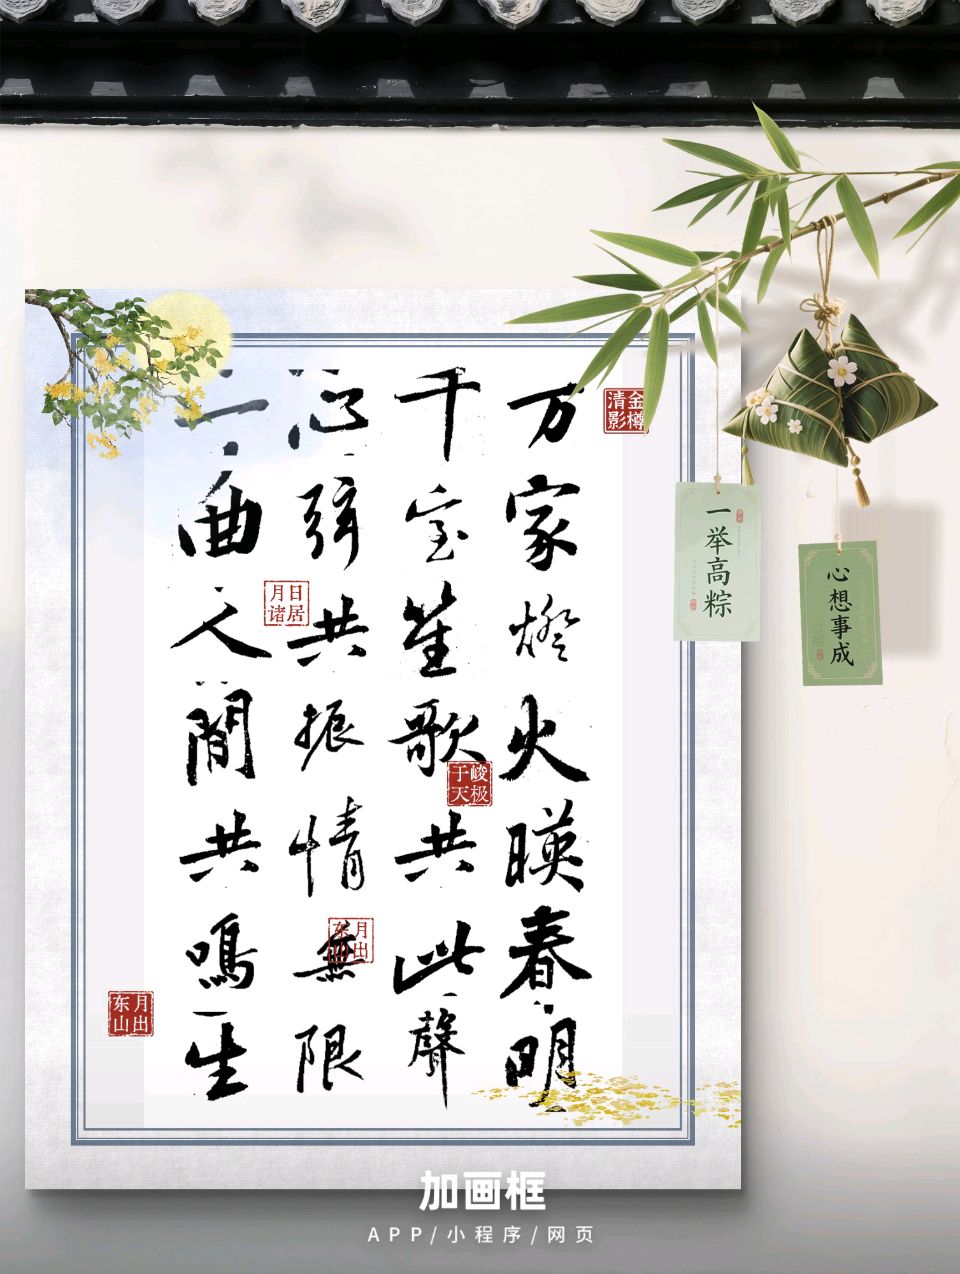 万家燈火暎春明
千室笙歌共此聲
心弦共振情無限
一曲人間共鳴生
金樽
清影
日居
月诸
峻极
于天
月出
东山
月出
东山
一举高粽
心想事成
加画框
APP/小程序/网页